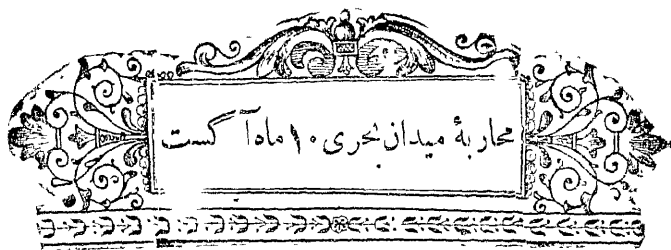 محاربهٔ میدان بحری ۱۰ ماه آگست